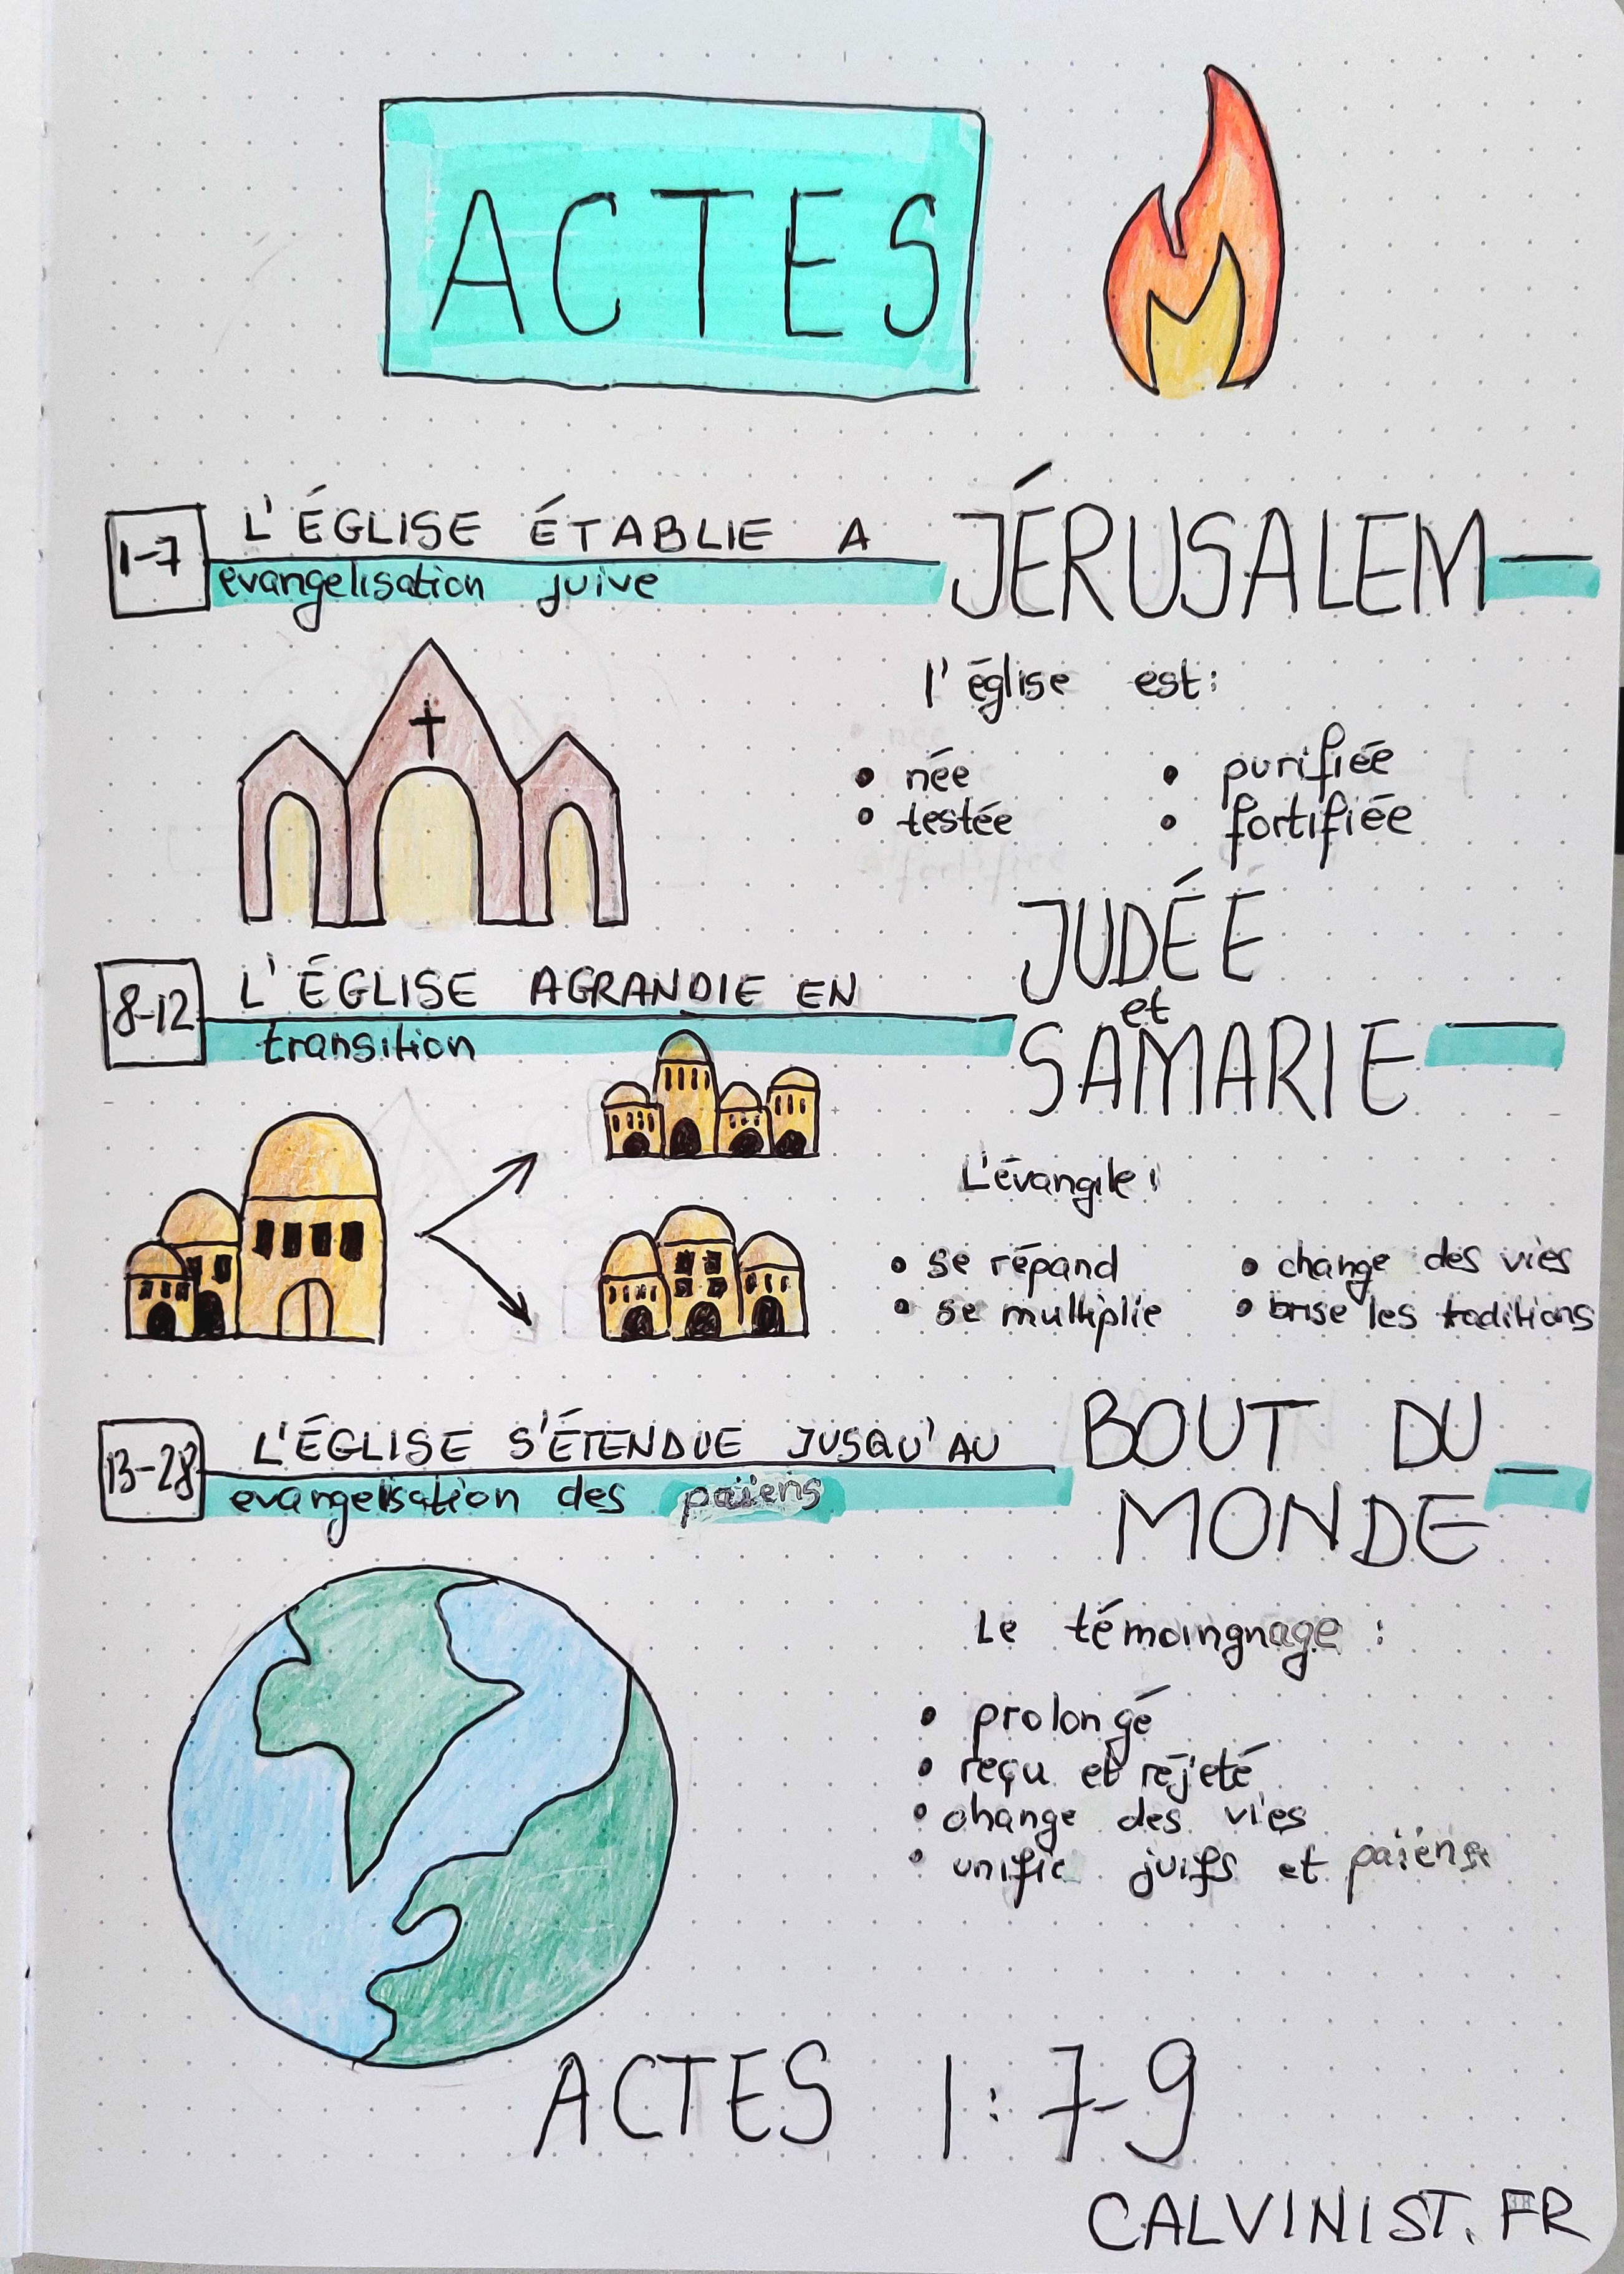 ACTES
1-7
L'ÉGLISE ÉTABLIE A JÉRUSALEM
evangelisation juive
l'église est:
• née
• testée
• purifiée
• fortifiée
8-12
L'ÉGLISE AGRANDIE EN JUDÉE et SAMARIE
transition
L'évangile:
• se répand
• se multiplie
• change des vies
• brise les traditions
13-28
L'ÉGLISE S'ÉTENDUE JUSQU'AU BOUT DU MONDE
evangelisation des païens
Le témoingnage :
• prolongé
• reçu et réjeté
• change des vies
• unifie juifs et païens
ACTES 1:7-9
CALVINIST.FR